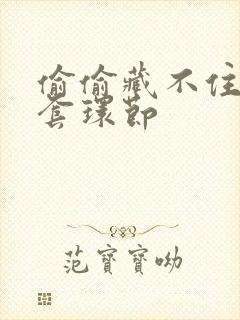 偷偷藏不住
套環節
范寶寶呦